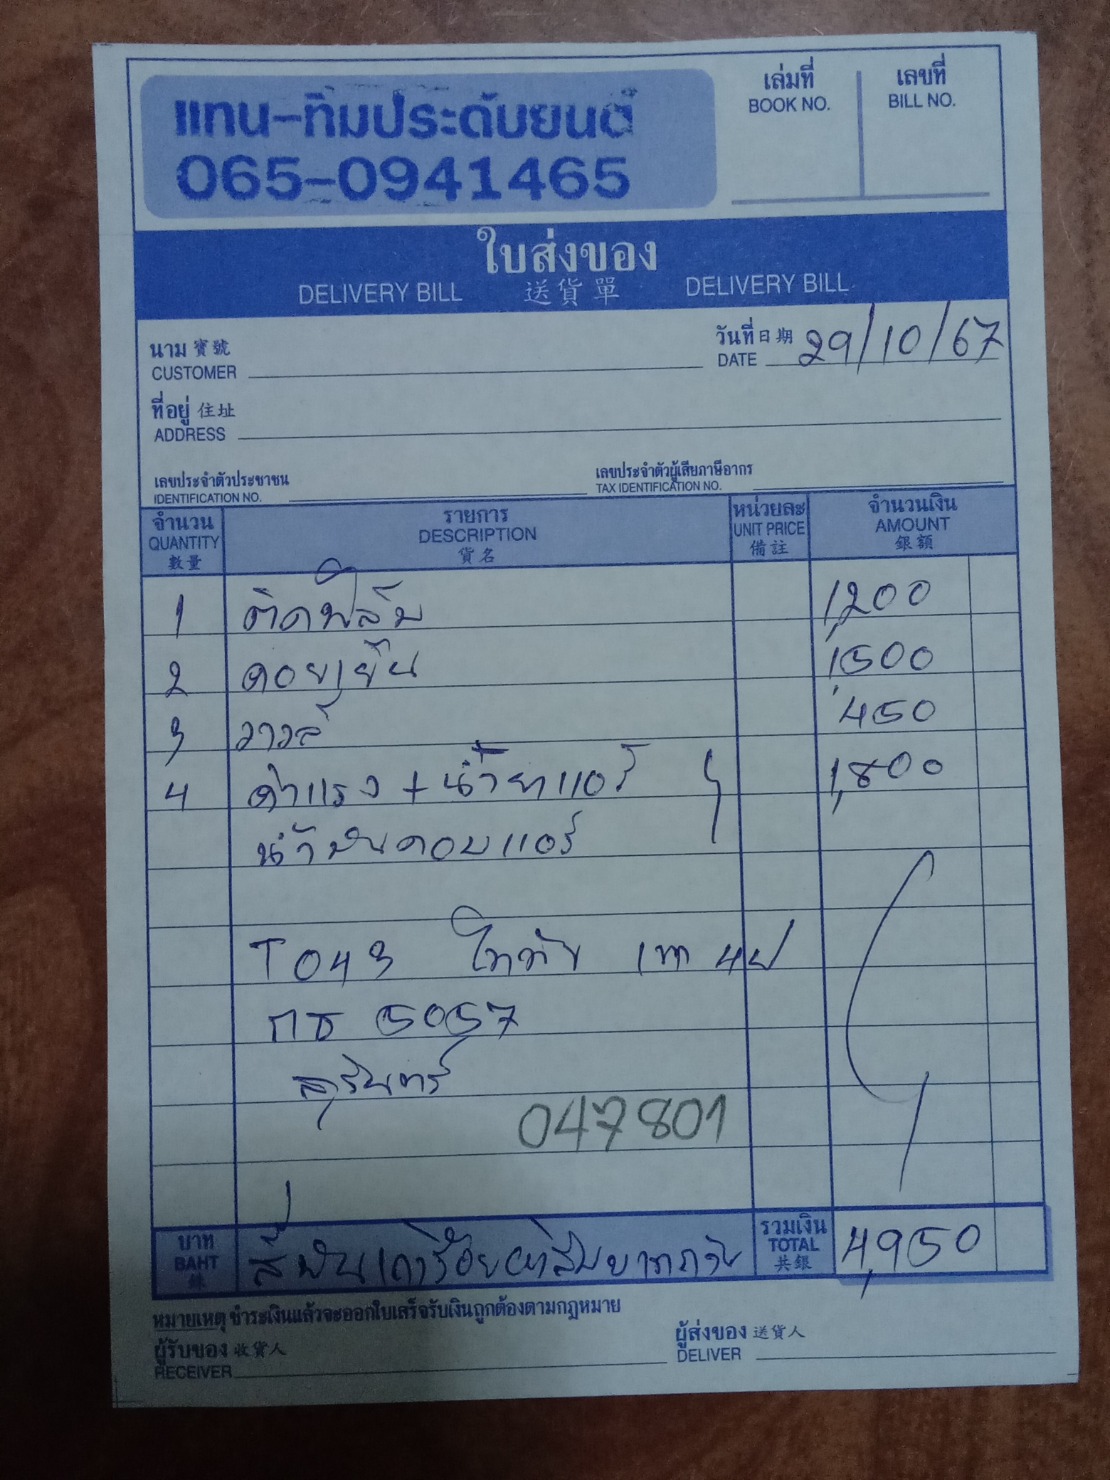 แทน-ทิมประดับยนต์
065-0941465
เล่มที่
BOOK NO.
เลขที่
BILL NO.
ใบส่งของ
DELIVERY BILL 送貨單 DELIVERY BILL
นาม 寶號
CUSTOMER
วันที่ 日期
DATE 29/10/67
ที่อยู่ 住址
ADDRESS
เลขประจำตัวประชาชน
IDENTIFICATION NO.
เลขประจำตัวผู้เสียภาษีอากร
TAX IDENTIFICATION NO.
จำนวน
QUANTITY
數量
รายการ
DESCRIPTION
貨名
หน่วยละ
UNIT PRICE
備註
จำนวนเงิน
AMOUNT
銀額
1 ติดฟิล์ม 1,200
2 คอยเย็น 1,500
3 วาวล์ 450
4 ค่าแรง + น้ำยาแอร์ 1,800
น้ำมันคอมแอร์
T043 4ป
กธ 5057
สุรินทร์
047801
บาท
BAHT
銖
สี่พันเก้าร้อยห้าสิบบาทถ้วน
รวมเงิน
TOTAL
共銀
4,950
หมายเหตุ ชำระเงินแล้วจะออกใบเสร็จรับเงินถูกต้องตามกฎหมาย
ผู้รับของ 收貨人
RECEIVER
ผู้ส่งของ 送貨人
DELIVER